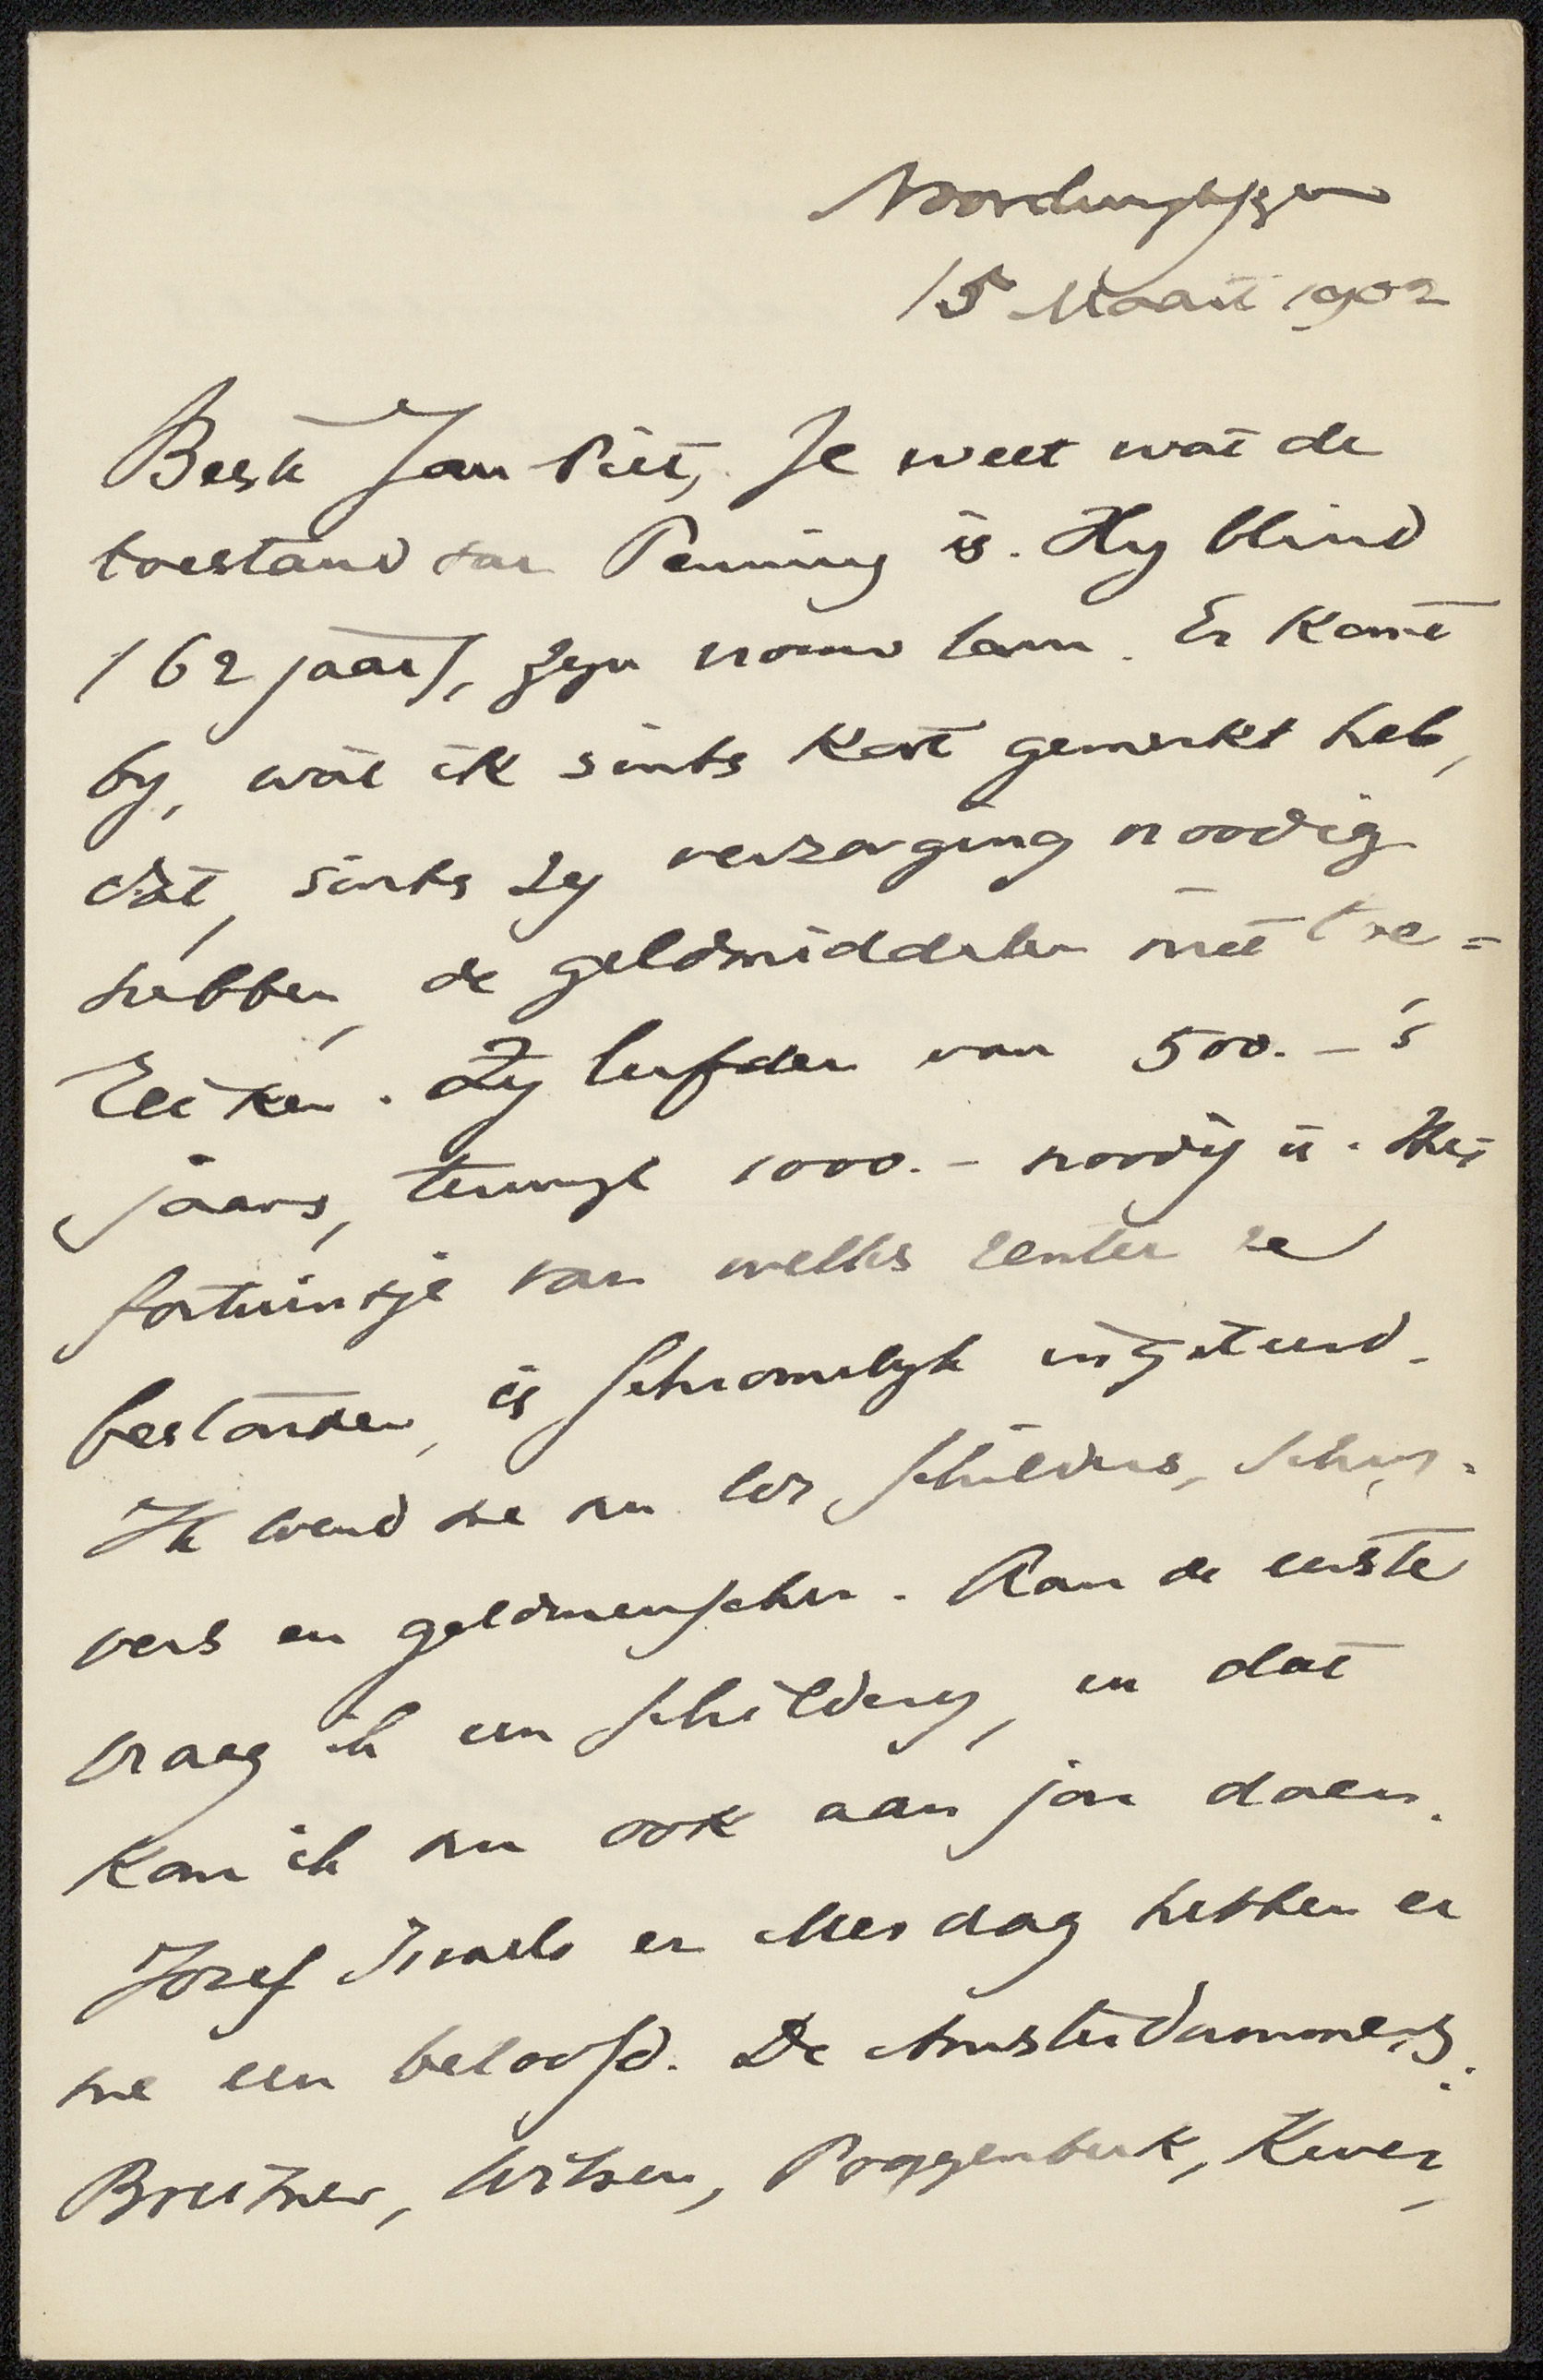 Noordwijk/Zee
15 Maart 1902
Beste Jan Piet, Je weet wat de
toestand van Penning is. Hy blind
(62 jaar), zyn vrouw lam. Er komt
by, wat ik sints kort gemerkt heb,
dat, sints zy verzorging noodig
hebben, de geldmiddelen niet toe=
reiken. Zy leefden van 500.– 's
jaars, terwyl 1000.– noodig is. Het
fortuintje van welks renten ze
bestonden, is schromelyk ingeteerd.
Ik wend me nu tot schilders, schry-
vers en geldmenschen. Aan de eerste
vraag ik een schildery, en dat
kan ik nu ook aan jou doen.
Jozef Israels en Mesdag hebben er
me een beloofd. De Amsterdammers:
Breitner, Witsen, Poggenbeek, Kever,